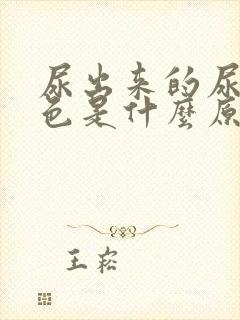 尿出来的尿
色是什麼原
王崧